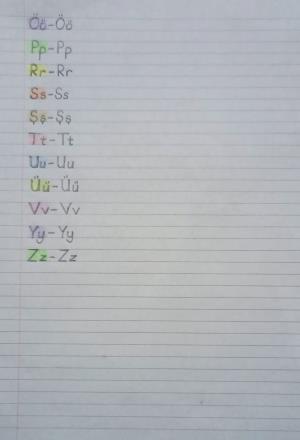 Öö-Öö
Pp-Pp
Rr-Rr
Ss-Ss
Şş-Şş
Tt-Tt
Uu-Uu
Üü-Üü
Vv-Vv
Yy-Yy
Zz-Zz